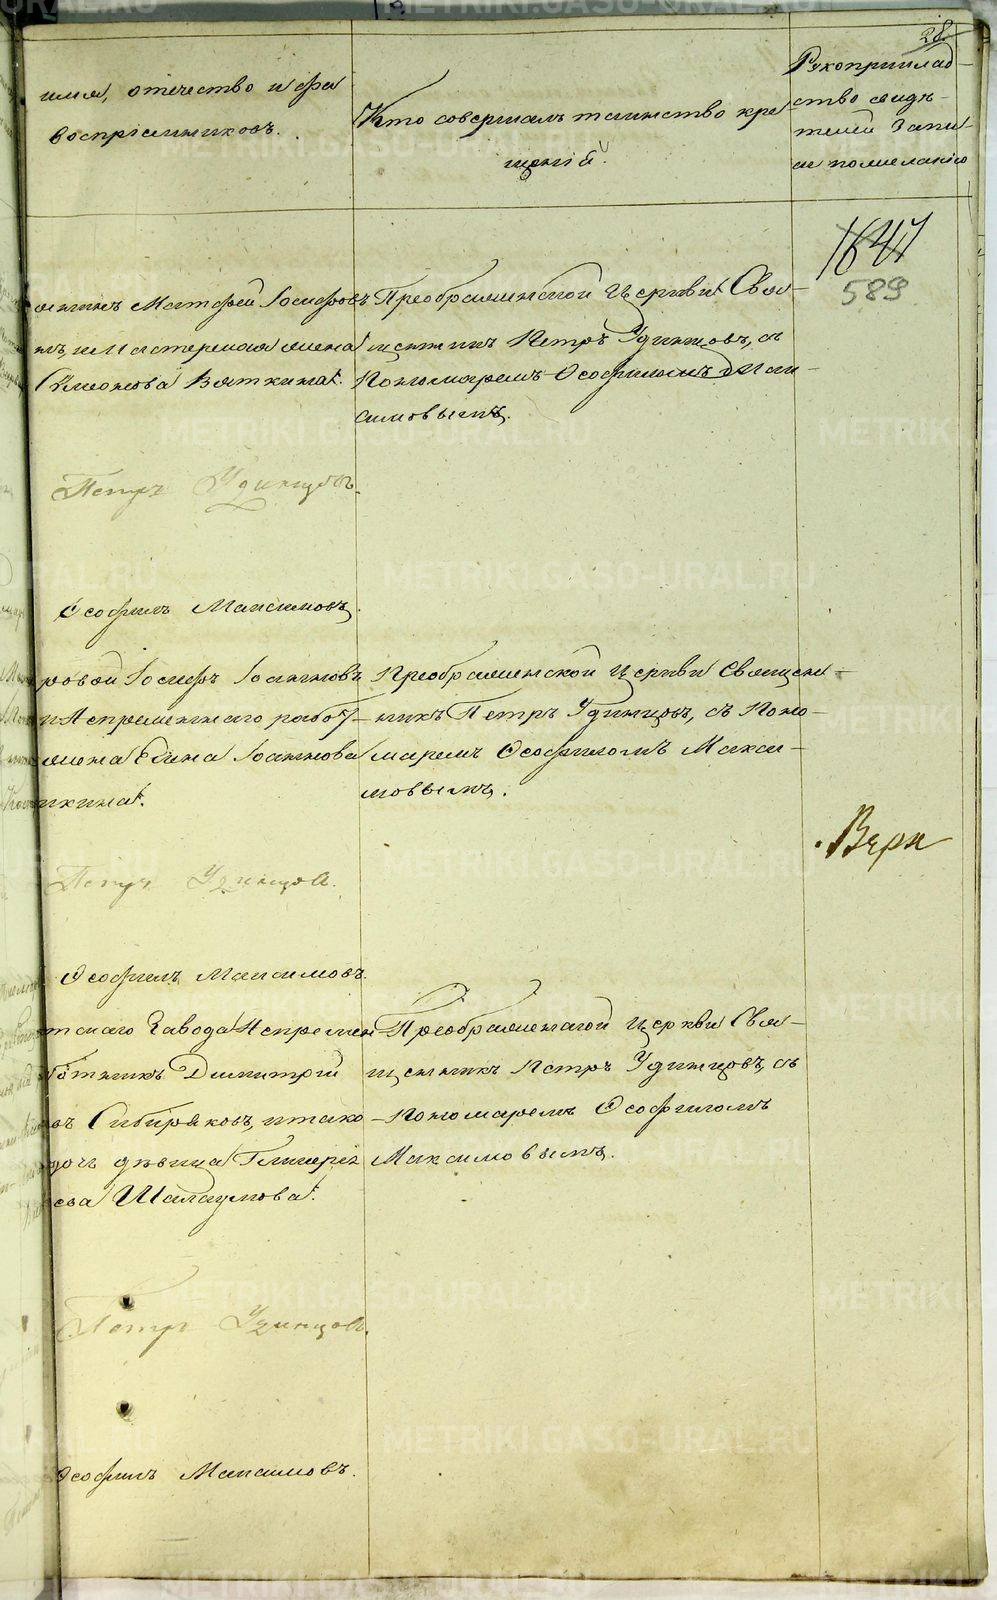 28.
имя, отечество и фа
воспріемниковъ.
Кто совершалъ таинство кре
щенія.
Рукоприклад-
ство свидѣ-
телей запи-
си по желанію
1647
589
Матфей Іосифовъ
мастерская жена
Симеонова Вяткина.
Преображенской Церкви Свя-
щенникъ Петръ Удинцовъ, съ
Пономаремъ Ѳеофиломъ Мак-
симовымъ.
Петръ Удинцовъ.
Ѳеофилъ Максимовъ
ровой Іосифъ Іоанновъ
и Непремѣннаго рабо
жена Іоаннова
кина.
Преображенской Церкви Священ-
никъ Петръ Удинцовъ, съ Поно-
маремъ Ѳеофиломъ Макси-
мовымъ.
Верн
Петръ Удинцов
Ѳеофилъ Максимовъ.
тскаго Завода Непремѣн
ботникъ Димитрій
въ Сибиряковъ, и тако
дочь дѣвица Гликерія
ева Шалаумова.
Преображенской церкви Свя-
щенникъ Петръ Удинцовъ, съ
Пономаремъ Ѳеофиломъ
Максимовымъ.
Петръ Удинцовъ.
Ѳеофилъ Максимовъ.
METRIKI.GASO-URAL.RU